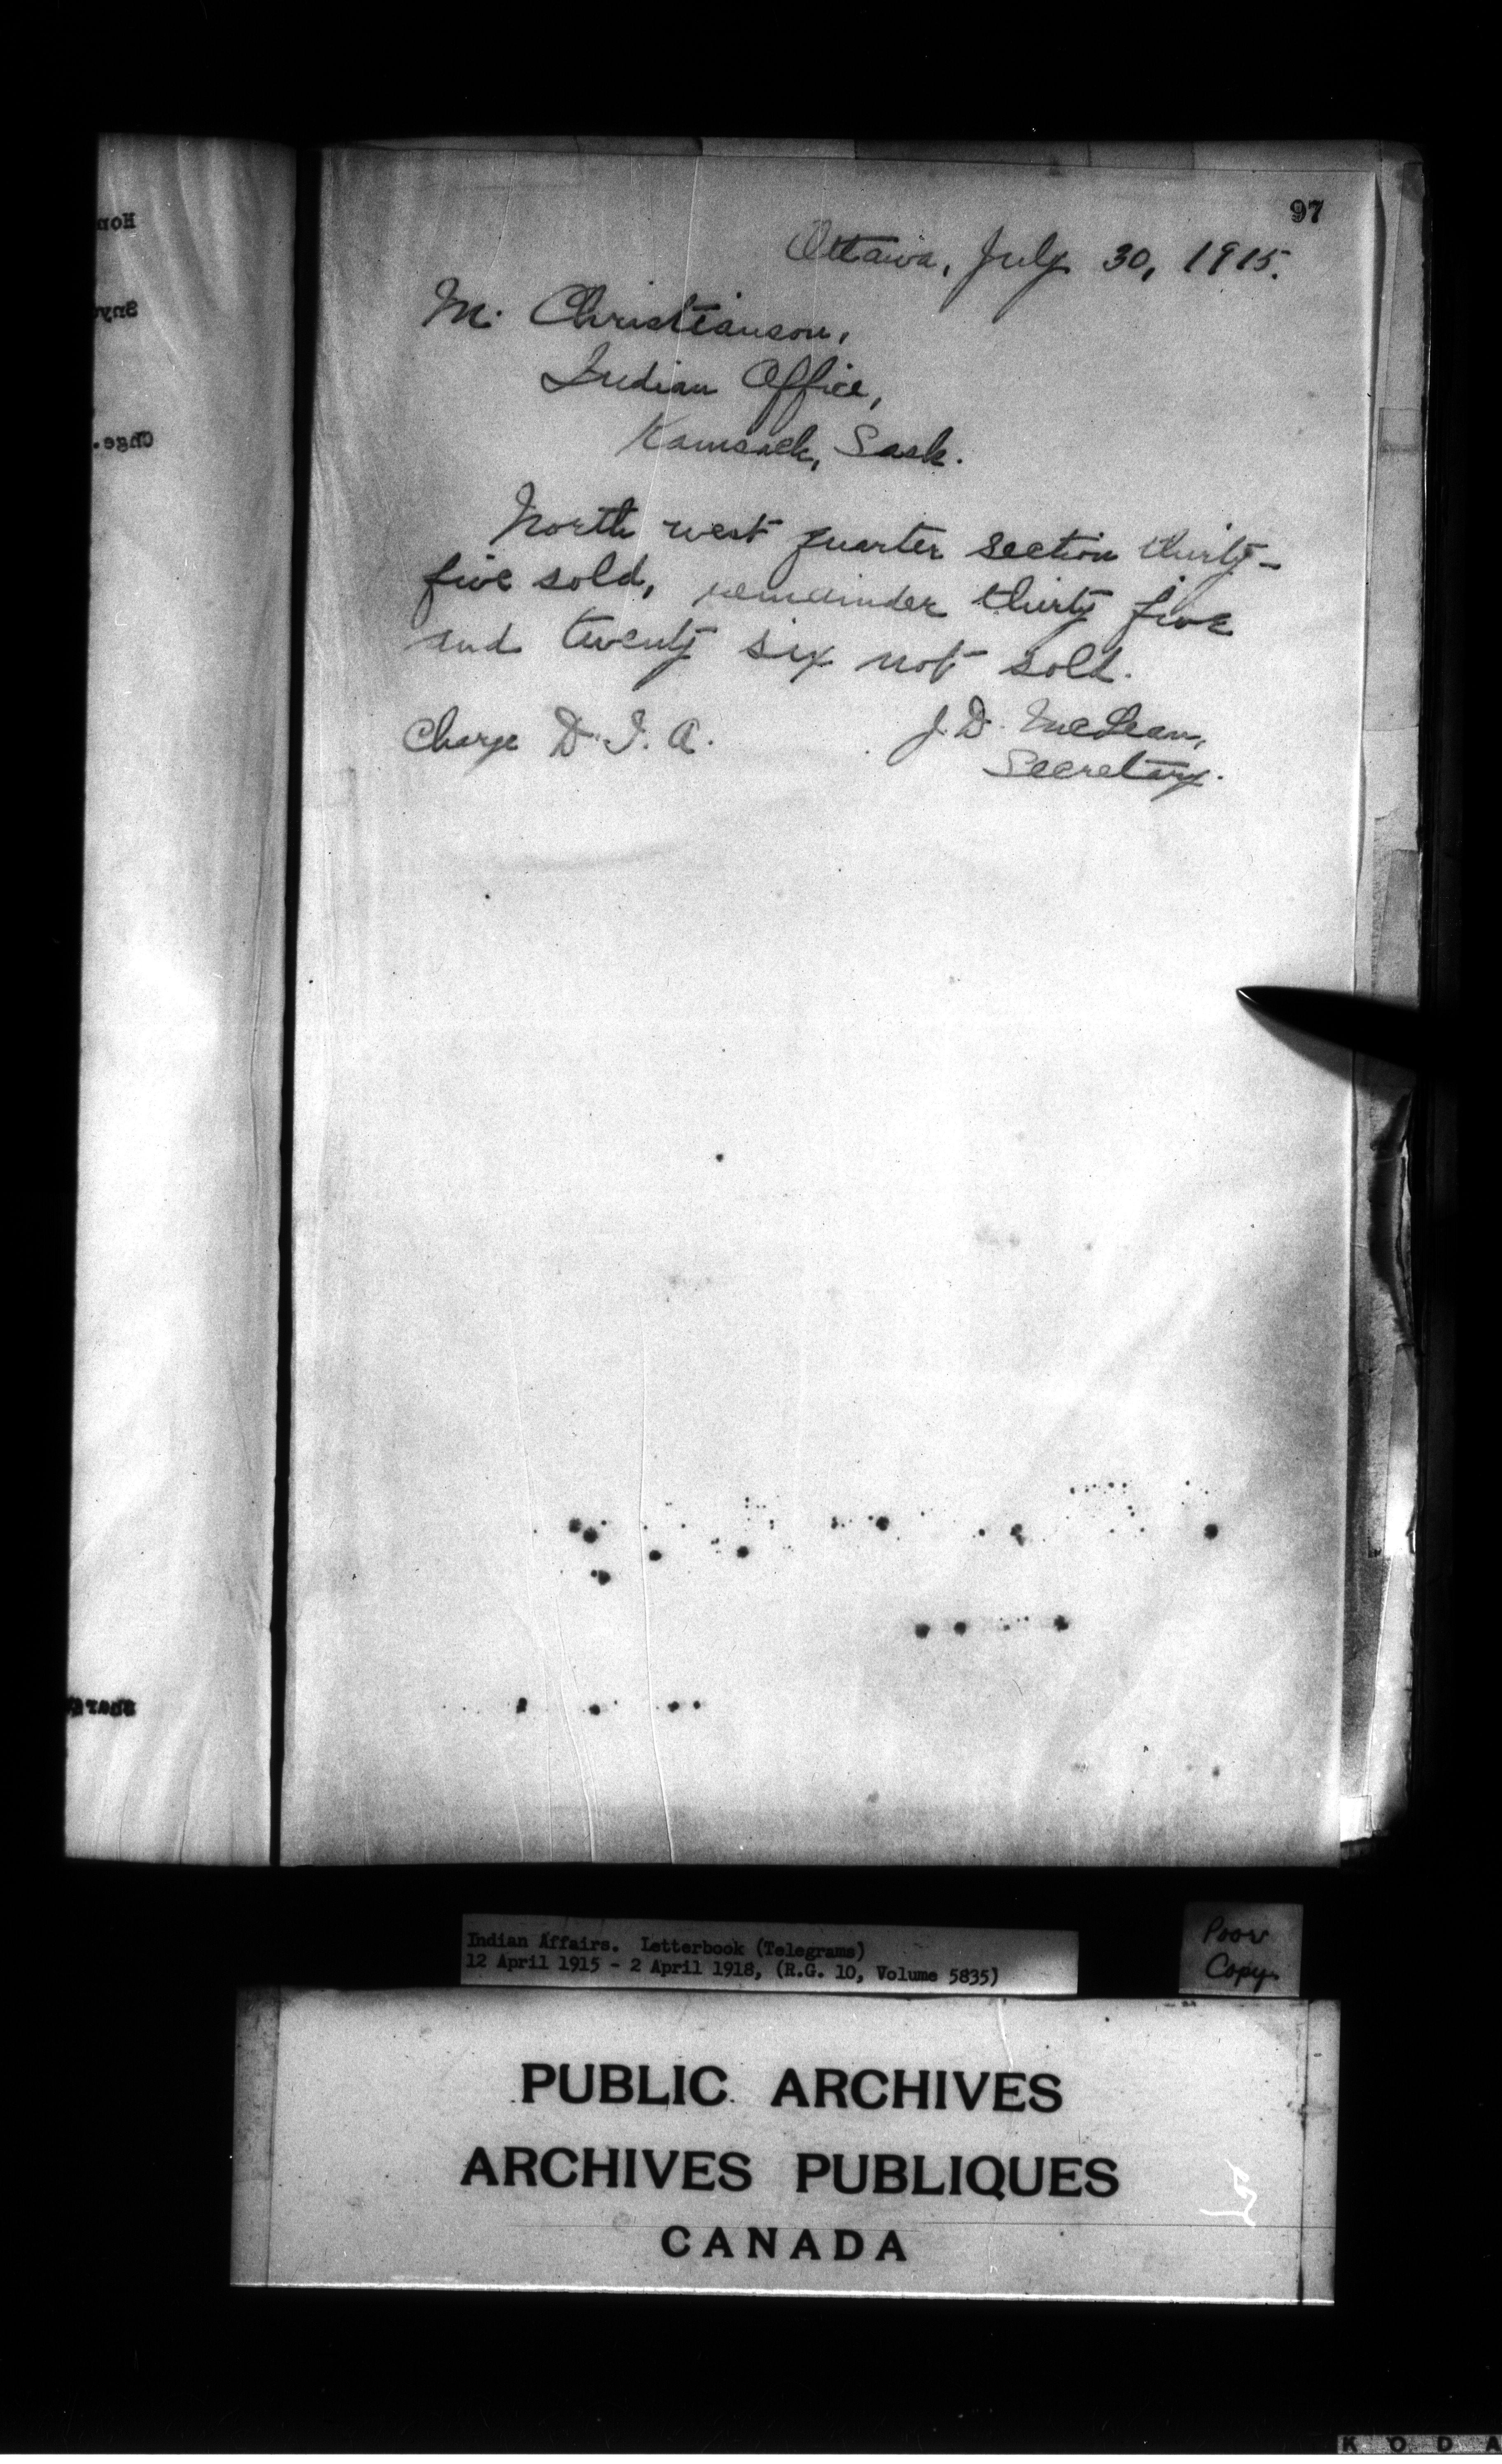 97
Ottawa, July 30, 1915.
M. Christianson,
Indian Office,
Kamsack, Sask.
North west quarter section thirty-
five sold, remainder thirty five
and twenty six not sold.
Charge D. I. A.
J. D. McLean,
Secretary.
Indian Affairs. Letterbook (Telegrams)
12 April 1915 - 2 April 1918, (R.G. 10, Volume 5835)
Poor
Copy
PUBLIC ARCHIVES
ARCHIVES PUBLIQUES
CANADA
KODA